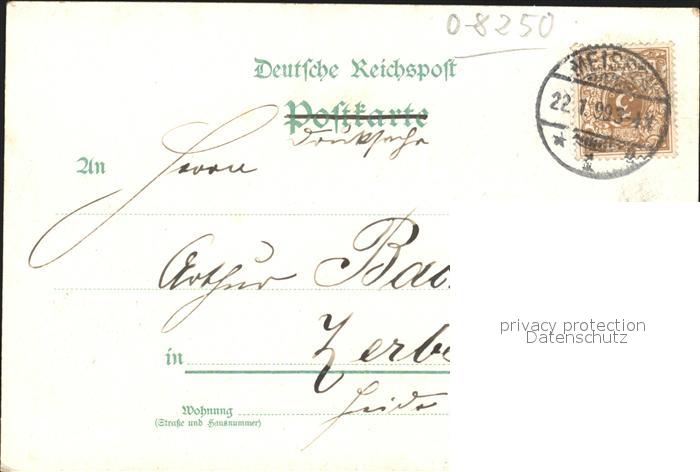 0-8250
Deutsche Reichspost
Postkarte
Drucksache
An Herrn
MEISSEN
22.1.99.3-4N
Arthur
in Zerb
Wohnung
(Straße und Hausnummer)
privacy protection
Datenschutz